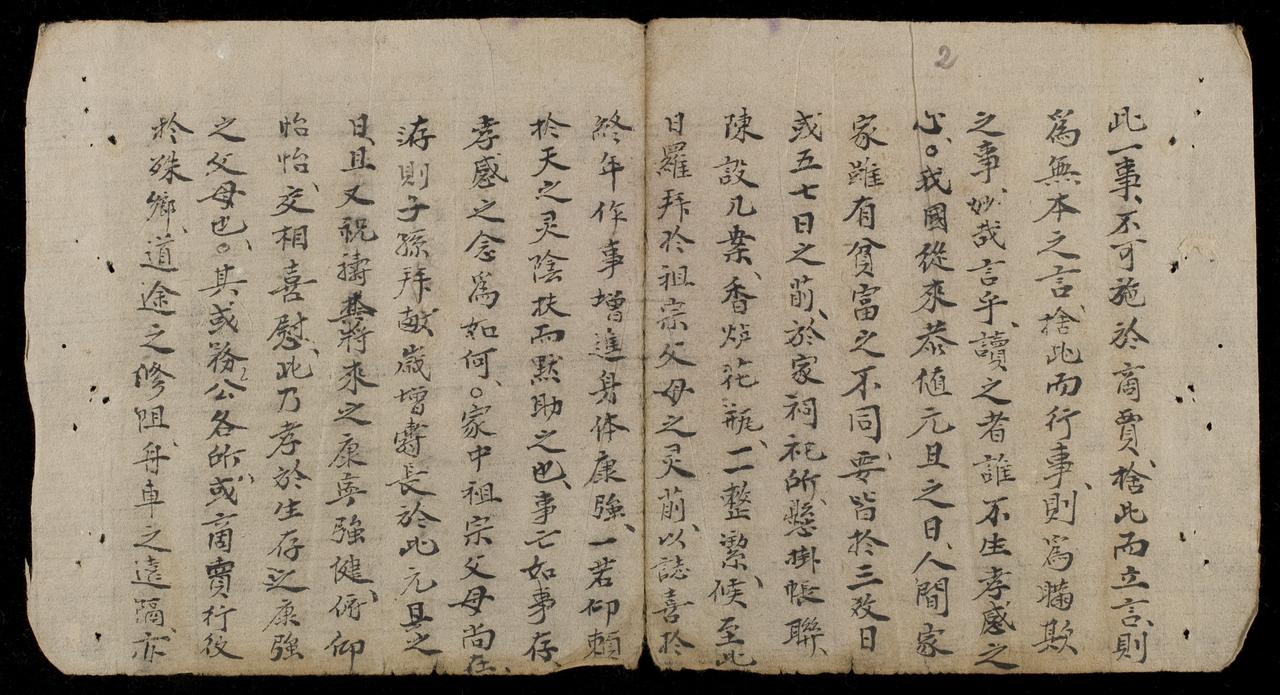 2
此一事、不可施於商賈、捨此而立言、則
為無本之言、捨此而行事、則為瞞欺
之事、妙哉言乎、讀之者誰不生孝感之
心。我國從來恭值元旦之日、人間家
家雖有貧富之不同、要皆於三数日
或五七日之前、於家祠祀所、懸掛帳聯、
陳設几案、香炉花瓶、一一整潔、候至此
日羅拜於祖宗父母之灵前、以誌喜於
終年作事增進身体康強、一若仰賴
於天之灵陰扶而默助之也、事亡如事存、
孝感之念為如何。家中祖宗父母尚在、
洊則子孫拜献歲增壽長於此元旦之
日、且又祝禱其將來之康寧強健、俯仰
怡怡、交相喜慰、此乃孝於生存之康強
之父母也。其或務公各所、或商賣行役
於殊鄉、道途之修阻、舟車之遠隔、亦